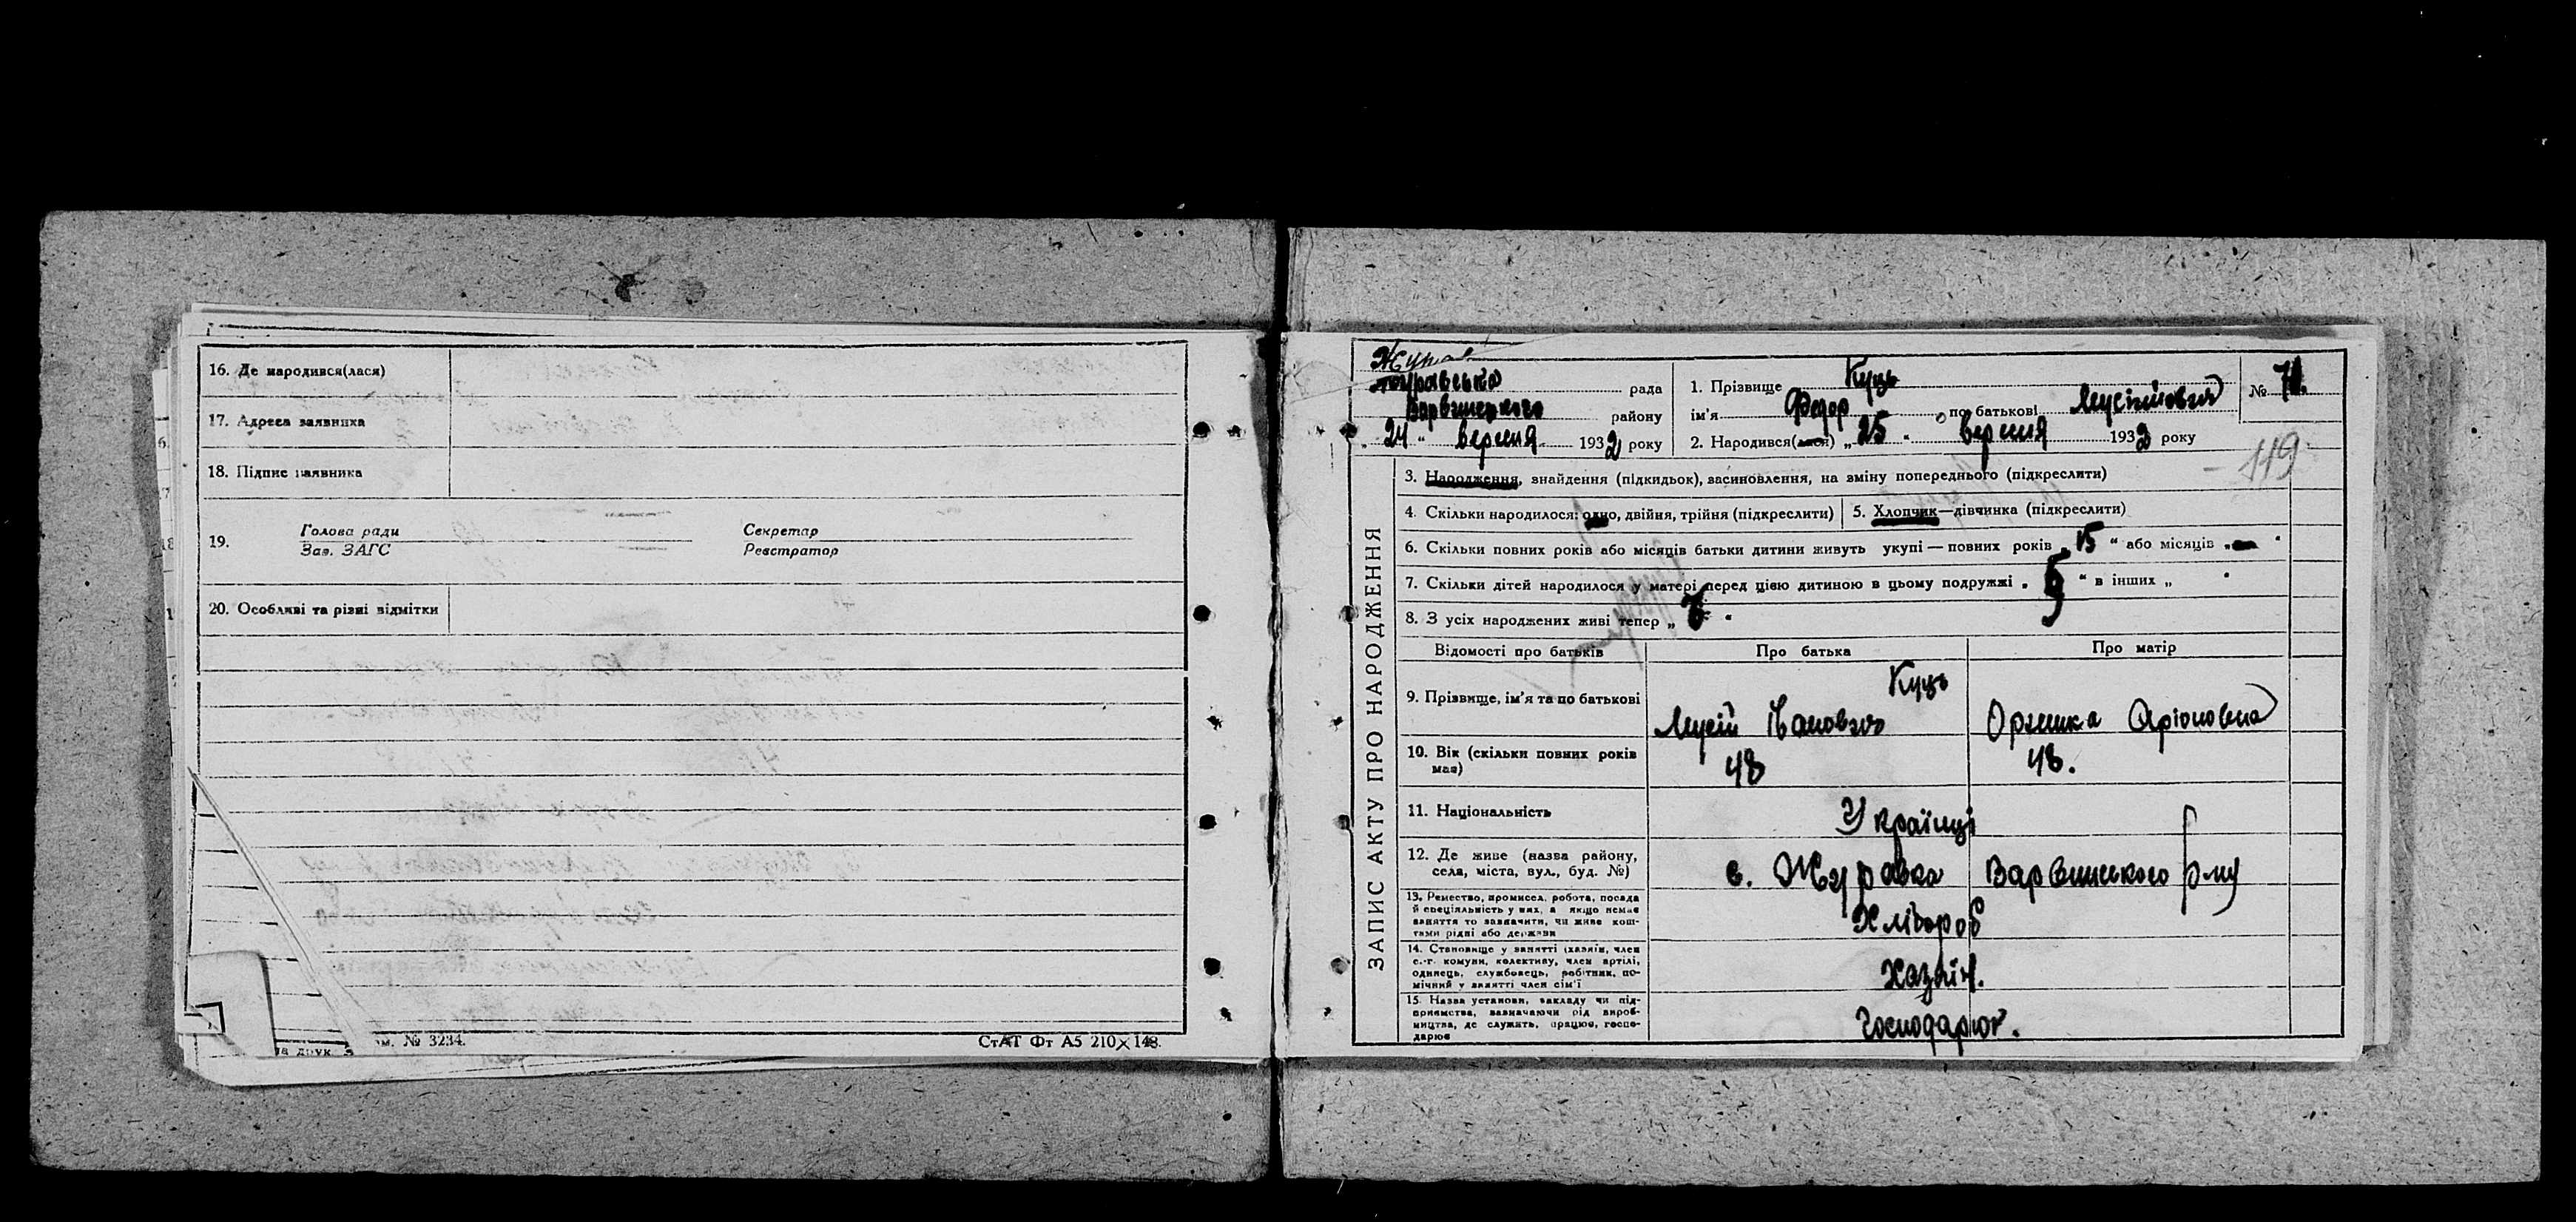 16. Де народився(лася)
17. Адреса заявника
18. Підпис заявника
19. Голова ради Секретар
Зав. ЗАГС Реєстратор
20. Особливі та різні відмітки
№ 3234.
СтАТ Фт А5 210×148.
Журавська рада
Варвинського району
24 " вересня 1932 року
1. Прізвище Куць
ім'я Федор по батькові Мусійович
2. Народився(лася) „ 25 " вересня 1932 року
№ 71.
119
ЗАПИС АКТУ ПРО НАРОДЖЕННЯ
3. Народження, знайдення (підкидьок), засиновлення, на зміну попереднього (підкреслити)
4. Скільки народилося: одно, двійня, трійня (підкреслити)
5. Хлопчик—дівчинка (підкреслити)
6. Скільки повних років або місяців батьки дитини живуть укупі — повних років „ 15 " або місяців „ — "
7. Скільки дітей народилося у матері перед цією дитиною в цьому подружжі „ " в інших „ "
8. З усіх народжених живі тепер „ "
Відомості про батьків Про батька Про матір
9. Прізвище, ім'я та по батькові Куць
Мусій Іванович Оришка Аріоновна
10. Вік (скільки повних років має) 48 48.
11. Національність Українці
12. Де живе (назва району, села, міста, вул., буд. №) с. Журавка Варвинського р-ну
13. Ремество, промисел, робота, посада
й спеціяльність у них, а якщо немає
заняття то зазначити, чи живе кош-
тами рідні або держави
Хлібороб
14. Становище у занятті (хазяїн, член
с.-г. комуни, колективу, член артілі,
одинець, службовець, робітник, по-
мічний у занятті член сім'ї
Хазяїн.
15. Назва установи, закладу чи під-
приємства, зазначаючи рід вироб-
ництва, де служить, працює, госпо-
дарює
Господарює.